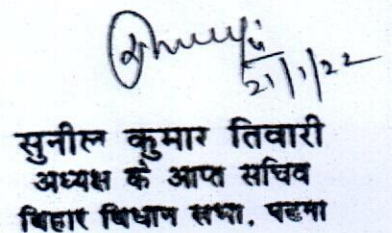 21/1/22
सुनील कुमार तिवारी
अध्यक्ष के आप्त सचिव
बिहार विधान सभा, पटना